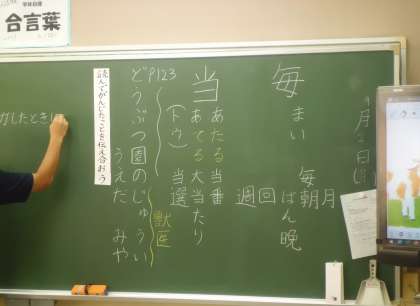 学級目標
合言葉
9月2日
毎
まい
毎朝月
ばん晩
回
週
当
あたる当番
あてる大当たり
(トウ)
当選
どP123
うぶつ園のじゅうい
獣医
うえだ みや
読んでかんじたことを伝え合おう
がしたとき